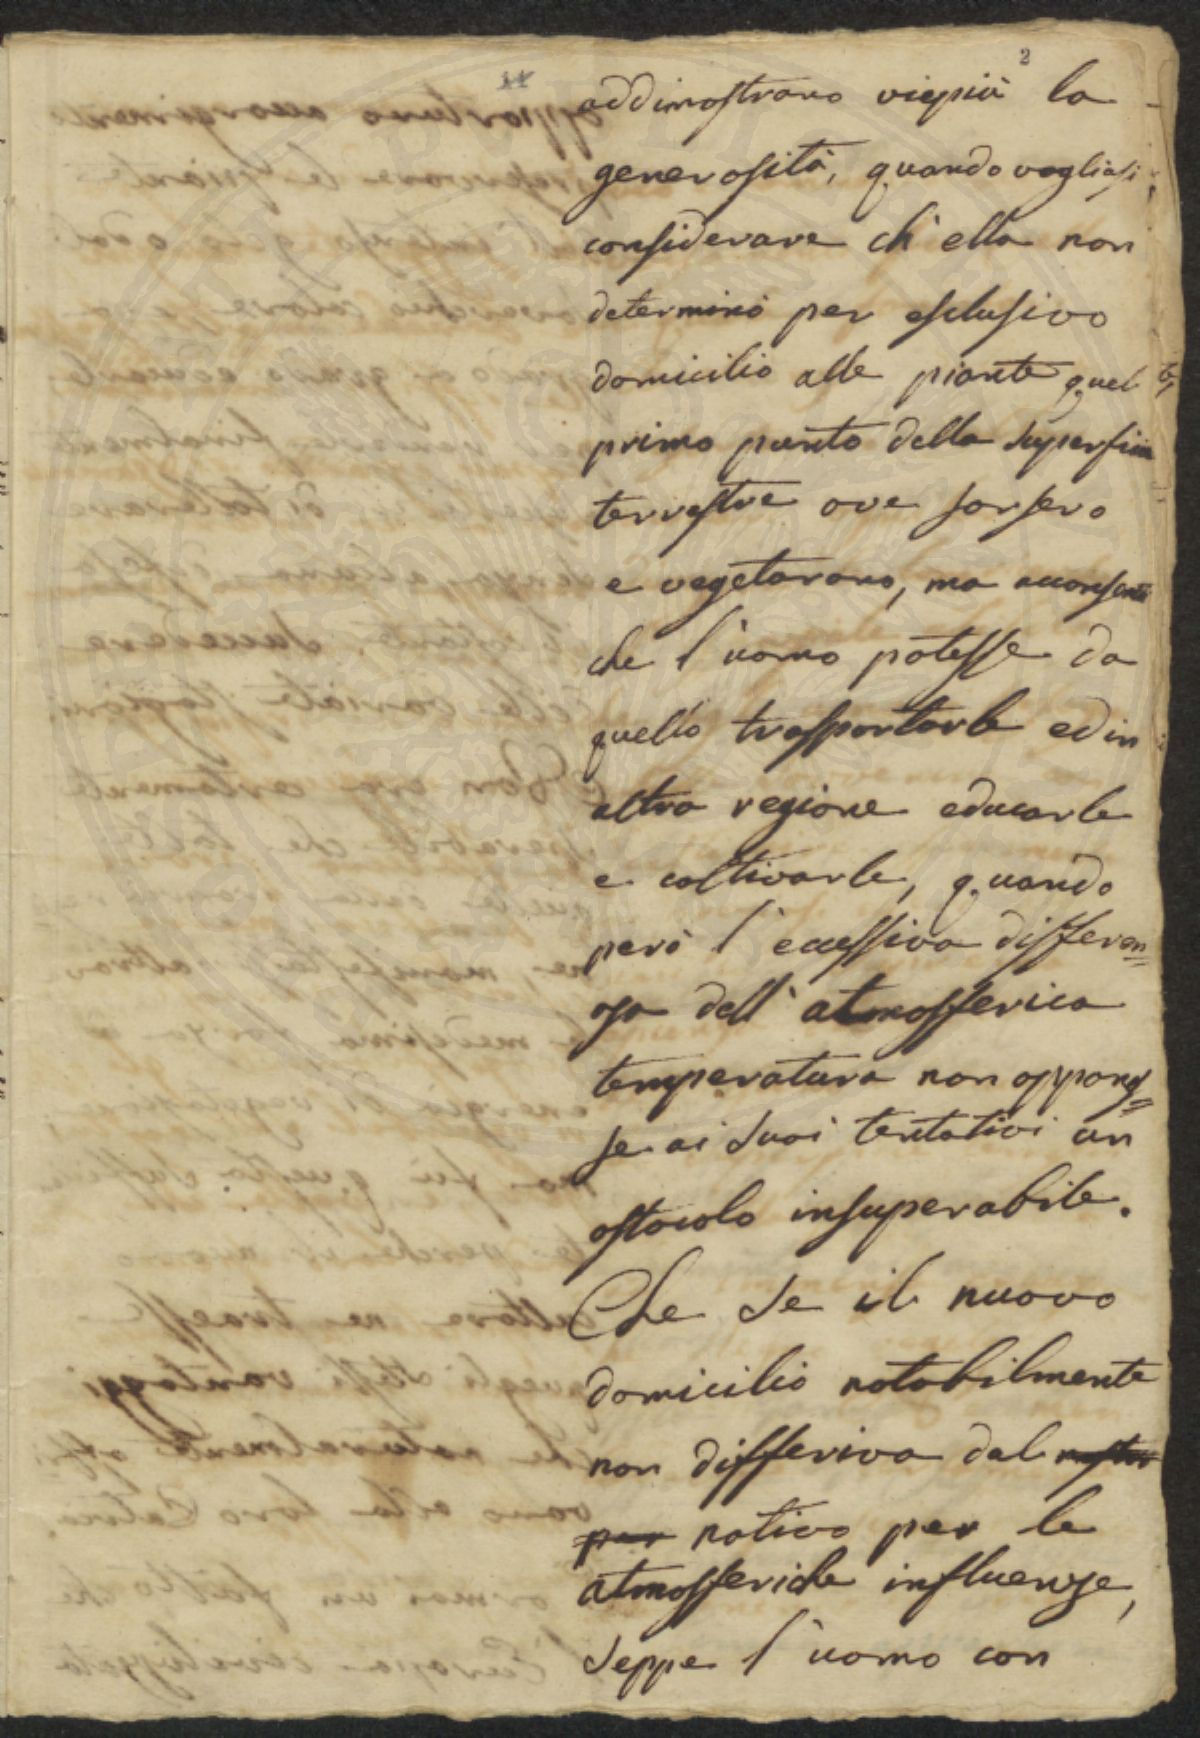 2
11
addimostrano viepiù la
generosità, quando vogliasi
considerare ch'ella non
determinò per esclusivo
domicilio alle piante quel
primo punto della superficie
terrestre ove sorsero
e vegetarono, ma acconsentì
che l'uomo potesse da
quello trasportarle ed in
altra regione educarle
e coltivarle, quando
però l'eccessiva differen=
za dell'atmosferica
temperatura non oppones=
se ai suoi tentativi un
ostacolo insuperabile.
Che se il nuovo
domicilio notabilmente
non differiva dal
per nativo per le
atmosferiche influenze,
seppe l'uomo con